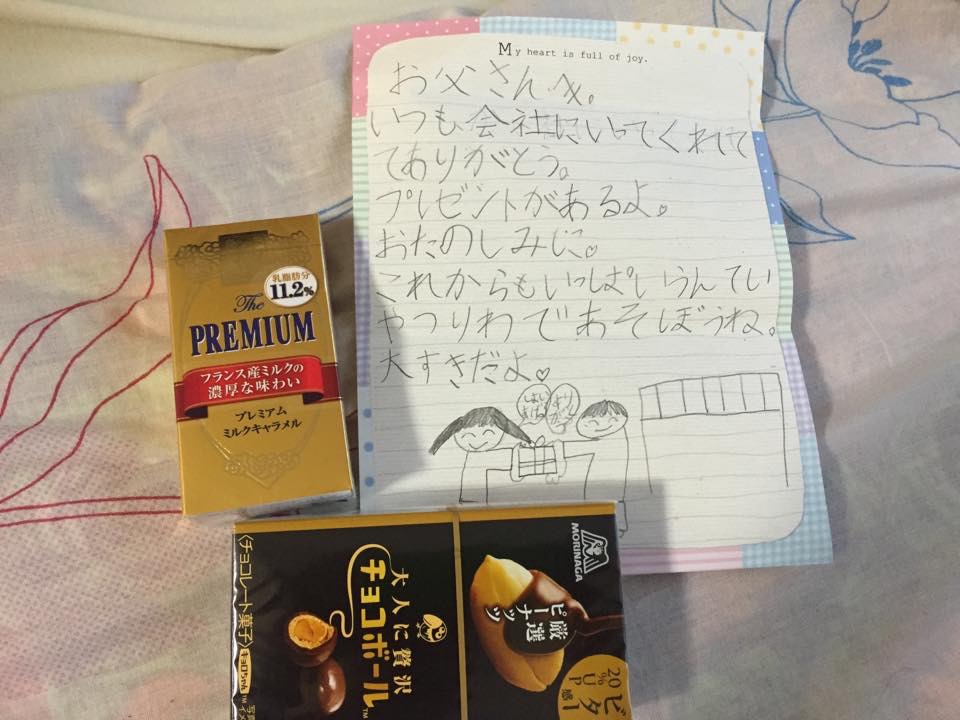 My heart is full of joy.
お父さんへ。
いつも会社にいってくれて
てありがとう。
プレゼントがあるよ。
おたのしみに。
これからもいっぱいうんてい
やつりわであそぼうね。
大すきだよ♡
乳脂肪分
11.2%
The
PREMIUM
フランス産ミルクの
濃厚な味わい
プレミアム
ミルクキャラメル
MORINAGA
厳選
ピーナッツ
大人に贅沢
チョコボール™
〈チョコレート菓子〉
キョロちゃん™
ビター
20%
UP